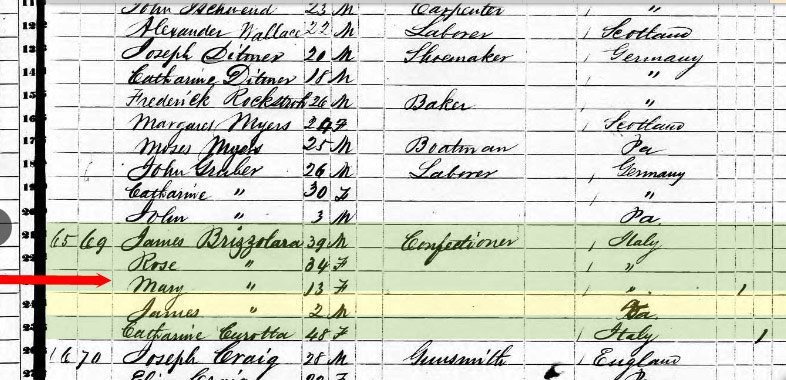 John Tschwend 23 M Carpenter "
12 Alexander Wallace 22 M Laborer / Scotland
13 Joseph Ditmer 20 M Shoemaker / Germany
14 Catharine Ditmer 18 M / "
15 Frederick Rockstroh 26 M Baker / "
16 Margaret Myers 24 F / Scotland
17 Moses Myers 25 M Boatman Pa
18 John Graber 26 M Laborer / Germany
19 Catharine " 30 F / "
20 John " 3 M Pa
21 65 69 James Brizzolara 39 M Confectioner / Italy
22 Rose " 34 F / "
Mary " 13 F / " 1
24 James " 2 M Pa
25 Catharine Curotta 48 F / Italy 1
26 16 70 Joseph Craig 28 M Gunsmith / England
Craig